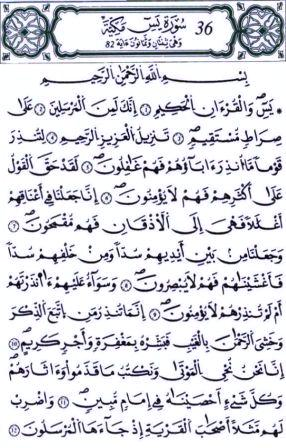 36 سورة يس مكية
وهي ثنتان وثمانون ءاية 82
بسم الله الرحمن الرحيم
يس والقرءان الحكيم ① إنك لمن المرسلين ② على
صراط مستقيم ③ تنزيل العزيز الرحيم ④ لتنذر
قوما ما أنذر ءاباؤهم فهم غفلون ⑤ لقد حق القول
على أكثرهم فهم لا يؤمنون ⑥ إنا جعلنا في أعناقهم
أغللا فهي إلى الأذقان فهم مقمحون ⑦
وجعلنا من بين أيديهم سدا ومن خلفهم سدا
فأغشينهم فهم لا يبصرون ⑧ وسواء عليهم ءانذرتهم
أم لم تنذرهم لا يؤمنون ⑨ إنما تنذر من اتبع الذكر
وخشي الرحمن بالغيب فبشره بمغفرة وأجر كريم ⑩
إنا نحن نحي الموتى ونكتب ما قدموا وءاثارهم
وكل شيء أحصينه في إمام مبين ⑪ واضرب
لهم مثلا أصحب القرية إذ جاءها المرسلون ⑫